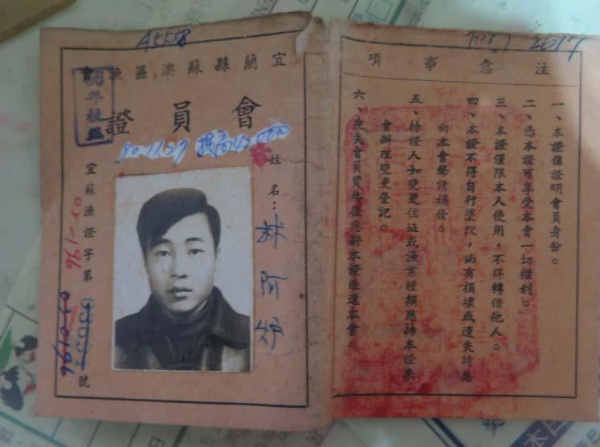 注意事項
一、本證僅證明會員身份。
二、憑本證可享受本會一切權利。
三、本證僅限本人使用,不得轉借他人。
四、本證不得自行塗改,倘有損壞或遺失時應
向本會聲請補發。
五、持證人如變更住址或漁業種類應持本證來
會辦理變更登記。
六、喪失會員資格後應將本證繳還本會。
A5558
宜蘭縣蘇澳區漁會
會員證
姓名:林阿炉
宜蘇漁證字第號
961-50